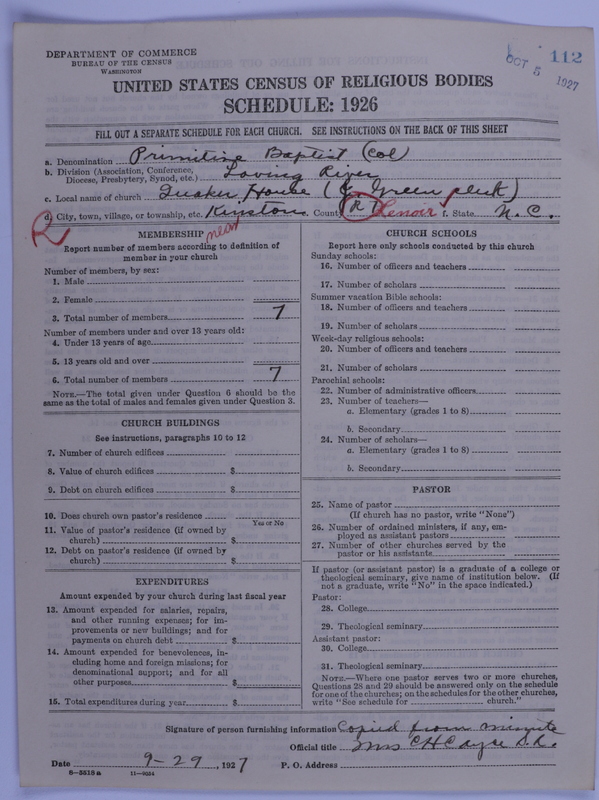 DEPARTMENT OF COMMERCE
BUREAU OF THE CENSUS
WASHINGTON
OCT 5 1927
112
UNITED STATES CENSUS OF RELIGIOUS BODIES
SCHEDULE: 1926
FILL OUT A SEPARATE SCHEDULE FOR EACH CHURCH. SEE INSTRUCTIONS ON THE BACK OF THIS SHEET
a. Denomination Primitive Baptist (Col)
b. Division (Association, Conference, Diocese, Presbytery, Synod, etc.) Loving River
c. Local name of church Quaker House ( Green
d. City, town, village, or township, etc. near Kinston e. County (R) Lenoir f. State N. C.
R
MEMBERSHIP
Report number of members according to definition of
member in your church
Number of members, by sex:
1. Male
2. Female
3. Total number of members 7
Number of members under and over 13 years old:
4. Under 13 years of age
5. 13 years old and over
6. Total number of members 7
NOTE.—The total given under Question 6 should be
same as the total of males and females given under Question 3.
CHURCH BUILDINGS
See instructions, paragraphs 10 to 12
7. Number of church edifices
8. Value of church edifices $
9. Debt on church edifices $
10. Does church own pastor's residence
Yes or No
11. Value of pastor's residence (if owned by
church) $
12. Debt on pastor's residence (if owned by
church) $
EXPENDITURES
Amount expended by your church during last fiscal year
13. Amount expended for salaries, repairs,
and other running expenses; for im-
provements or new buildings; and for
payments on church debt $
14. Amount expended for benevolences, in-
cluding home and foreign missions; for
denominational support; and for all
other purposes $
15. Total expenditures during year $
CHURCH SCHOOLS
Report here only schools conducted by this church
Sunday schools:
16. Number of officers and teachers
17. Number of scholars
Summer vacation Bible schools:
18. Number of officers and teachers
19. Number of scholars
Week-day religious schools:
20. Number of officers and teachers
21. Number of scholars
Parochial schools:
22. Number of administrative officers
23. Number of teachers—
a. Elementary (grades 1 to 8)
b. Secondary
24. Number of scholars—
a. Elementary (grades 1 to 8)
b. Secondary
PASTOR
25. Name of pastor
(If church has no pastor, write "None")
26. Number of ordained ministers, if any, em-
ployed as assistant pastors
27. Number of other churches served by the
pastor or his assistants
If pastor (or assistant pastor) is a graduate of a college or
theological seminary, give name of institution below. (If
not a graduate, write "No" in the space indicated.)
Pastor:
28. College
29. Theological seminary
Assistant pastor:
30. College
31. Theological seminary
NOTE.—Where one pastor serves two or more churches,
Questions 28 and 29 should be answered only on the schedule
for one of the churches; on the schedules for the other churches,
write "See schedule for church."
Signature of person furnishing information Copied from minute
Official title Mrs C H Cayce
Date 9-29, 1927 P. O. Address
8-5518a 11-9034